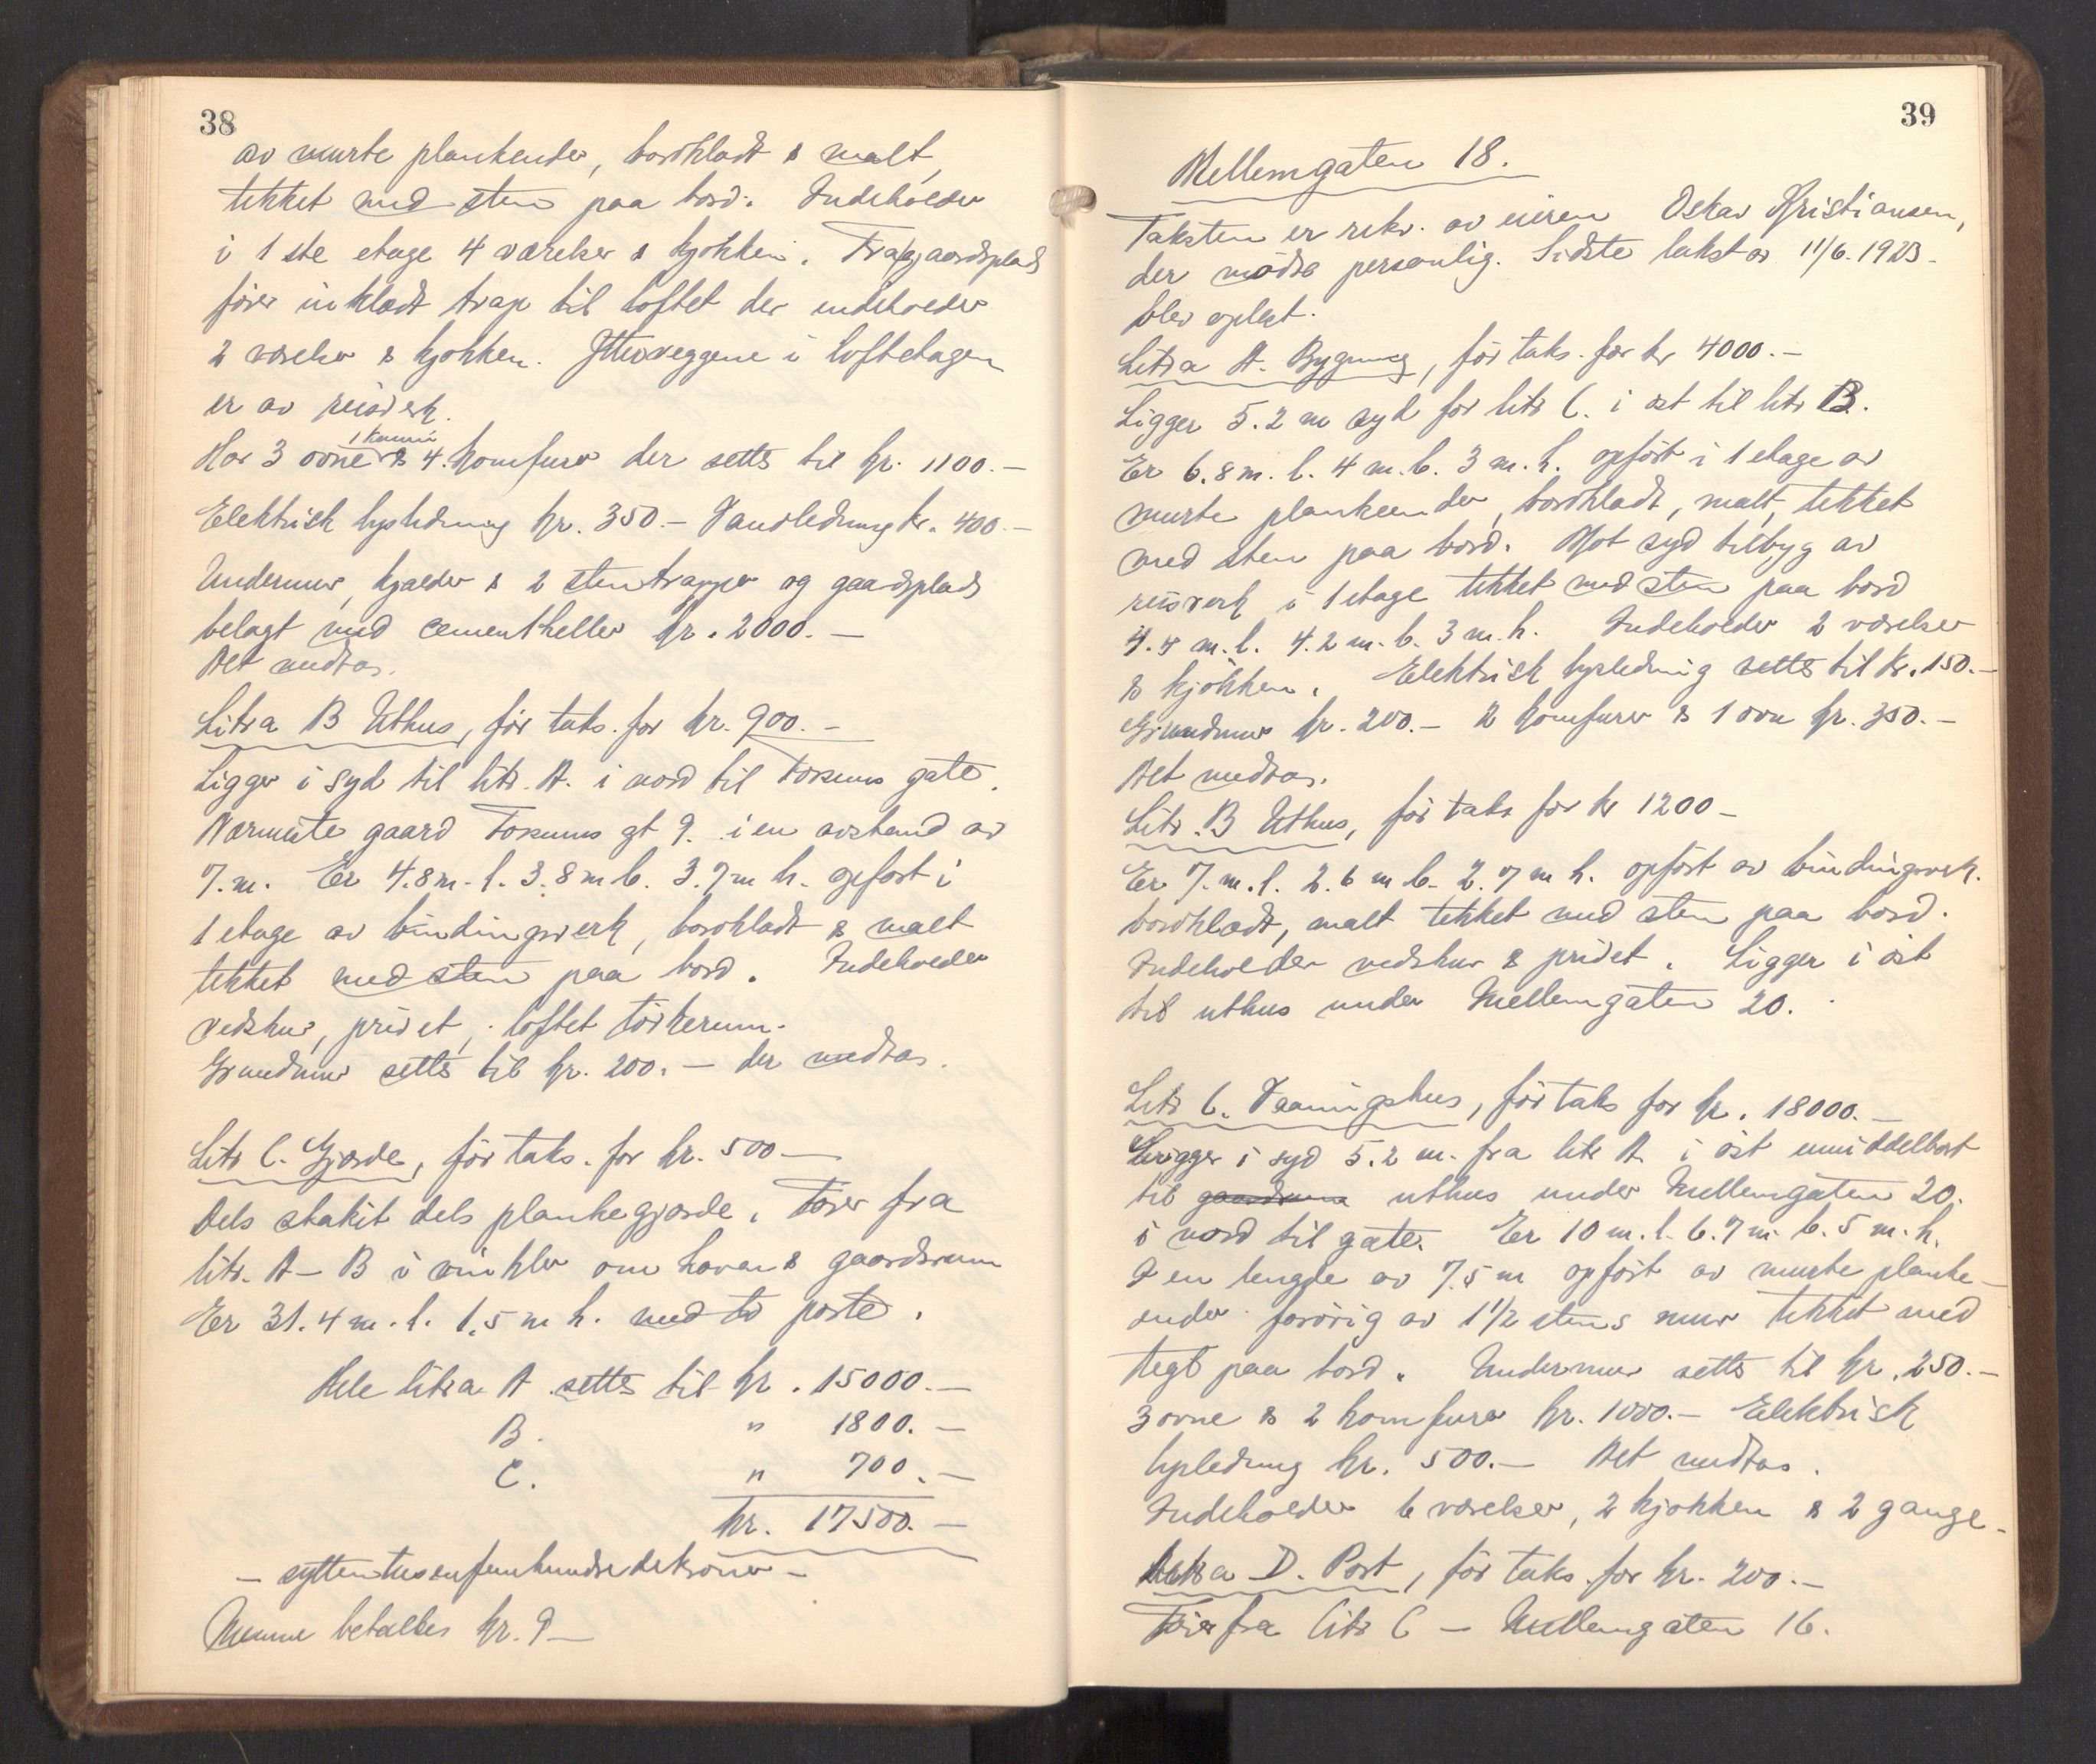 38
av murte plankender, bordklædt & malt,
tekket med sten paa bord. Indeholder
i 1ste etage 4 værelser & kjøkken. Fra gaardsplads
fører inklædt trap til loftet der indeholder
2 værelser & kjøkken. Ytterveggene i loftetagen
er av reisverk.
1 kamin
Har 3 ovne & 4 komfurer der settes til kr. 1100.–
Elektrisk lysledning kr. 350.– Vandledning kr. 400.–
Undermur, kjælder & 2 stentrapper og gaardsplads
belagt med cementheller kr. 2000.–
Alt medtas.
Litra B Uthus, før taks. for kr. 900.–
Ligger i syd til litr. A. i nord til Fosums gate.
Nærmeste gaard Fosums gt 9. i en avstand av
7.m. Er 4.8m.l. 3.8m b. 3.7m h. opført i
1 etage av bindingsverk, bordklædt & malt
tekket med sten paa bord. Indeholder
vedskur, privet, loftet tørkerum.
Grundmur settes til kr. 200.– der medtas.
Litr C. Gjærde, før taks. for kr. 500–
Dels stakit dels plankegjærde. Fører fra
litr. A – B i vinkler om haven & gaardsrum
Er 31.4 m.l. 1.5 m h. med to porte.
Hele litra A settes til kr. 15000.–
B. " 1800.–
C. " 700.–
kr. 17500.–
– syttentusenfemhundredekroner –
Menne betaltes kr. 9–
39
Mellemgaten 18.
Taksten er rekv. av eieren Oskar Kristiansen,
der mødte personlig. Sidste takst av 11/6.1923.
blev oplest.
Litra A. Bygning, før taks. for kr 4000.–
Ligger 5.2 m syd for litr C. i øst til litr B.
Er 6.8 m.l. 4 m.b. 3 m.h. opført i 1 etage av
murte plankeender, bordklædt, malt, tekket
med sten paa bord. Mot syd tilbyg av
reisverk i 1 etage tekket med sten paa bord
4.4 m.l. 4.2 m.b. 3 m.h. Indeholder 2 værelser
& kjøkken. Elektrisk lysledning settes til kr. 150.–
Grundmur kr. 200.– 2 komfurer & 1 ovn kr. 350.–
Alt medtas.
Litr. B Uthus, før taks for kr 1200–
Er 7.m.l. 2.6 m b. 2.7 m h. opført av bindingsverk.
bordklædt, malt tekket med sten paa bord.
Indeholder vedskur & privet. Ligger i øst
til uthus under Mellemgaten 20.
Litr C. Vaaningshus, før taks for kr. 18000.–
Ligger i syd 5.2 m. fra litr A. i øst umiddelbart
til gaardsrum uthus under Mellemgaten 20.
i nord til gate. Er 10 m.l. 6.7 m. b. 5 m.h.
I en lengde av 7.5 m opført av murte planke-
ender forøvrig av 1 1/2 stens mur tekket med
tegl paa bord. Undermur settes til kr. 250.–
3 ovne & 2 komfurer kr. 1000.– Elektrisk
lysledning kr. 500.– Alt medtas.
Indeholder 6 værelser, 2 kjøkken & 2 gange.
Litra D. Port, før taks. for kr. 200.–
Fører fra litr C – Mellemgaten 16.